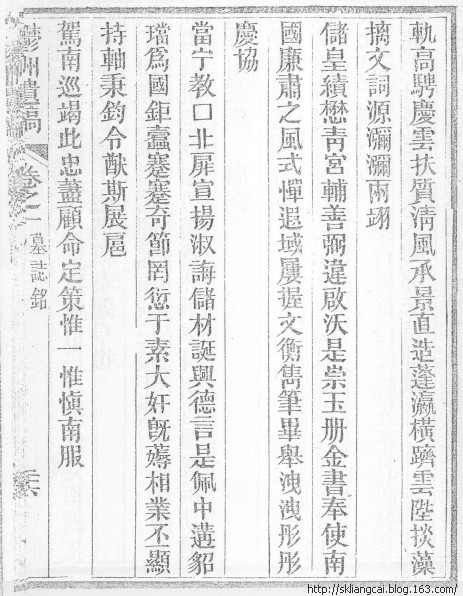 軌高騁慶雲扶質清風承景直造蓬瀛橫躋雲陛掞藻
摛文詞源瀰瀰兩翊
儲皇績懋青宮輔善弼違啟沃是崇玉册金書奉使南
國廉肅之風式憚遐域屢握文衡雋筆畢舉洩洩彤彤
慶協
當宁教口北扉宣揚淑誨儲材誕興德言是佩中遘貂
璫為國鉅蠹蹇蹇奇節罔愆于素大奸旣薅相業丕顯
持軸秉鈞令猷斯展扈
駕南巡竭此忠藎顧命定策惟一惟慎南服
鬱洲遺稿 卷之 墓誌銘
http://skliangcai.blog.163.com/